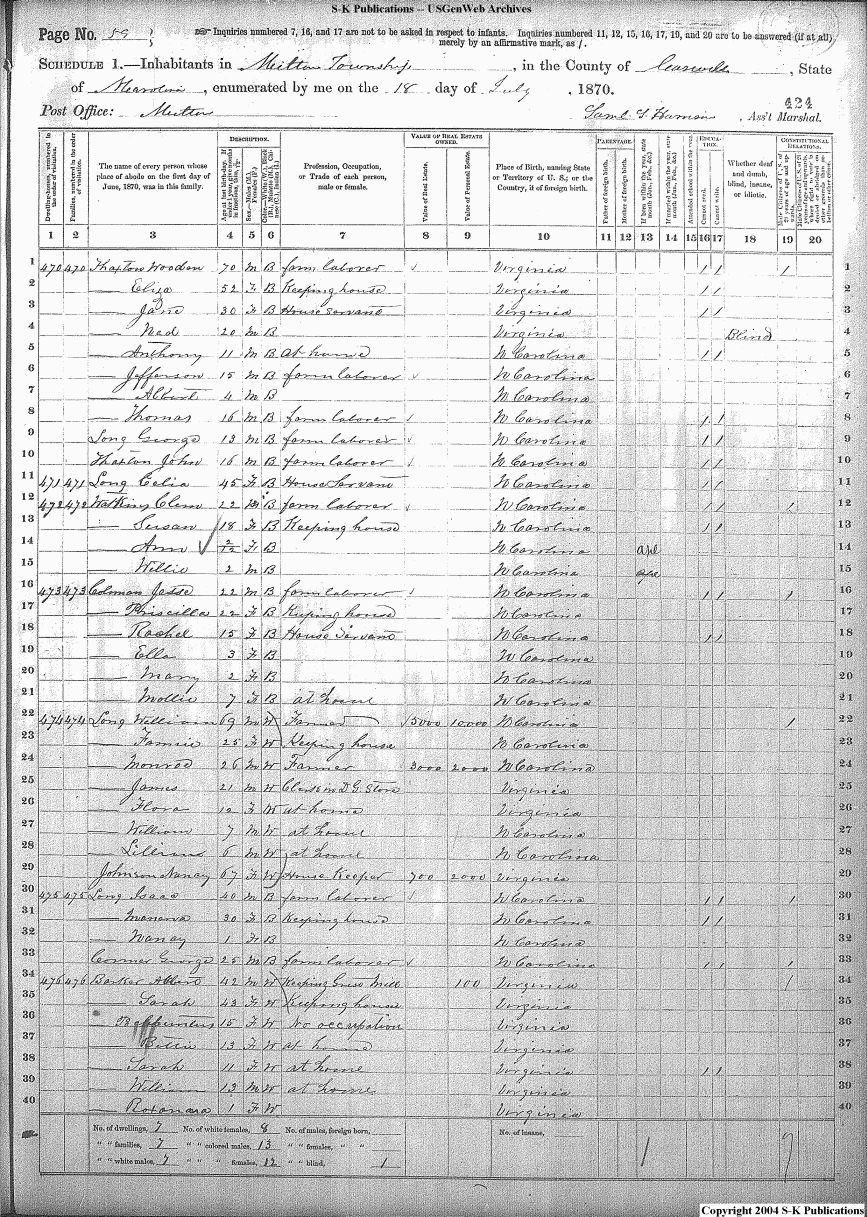 S-K Publications -- USGenWeb Archives
Page No. 59
Inquiries numbered 7, 16, and 17 are not to be asked in respect to infants. Inquiries numbered 11, 12, 15, 16, 17, 19, and 20 are to be answered (if at all)
merely by an affirmative mark, as /.
SCHEDULE 1.—Inhabitants in Milton Township, in the County of Caswell, State
of N Carolina, enumerated by me on the 18 day of July, 1870.
424
Post Office: Milton Saml. Harrison, Ass't Marshal.
DESCRIPTION. VALUE OF REAL ESTATE OWNED. PARENTAGE. EDUCATION. CONSTITUTIONAL RELATIONS.
Dwelling-houses, numbered in the order of visitation. Families, numbered in the order of visitation. The name of every person whose place of abode on the first day of June, 1870, was in this family. Profession, Occupation, or Trade of each person, male or female. Value of Real Estate. Value of Personal Estate. Place of Birth, naming State or Territory of U. S.; or the Country, if of foreign birth. Father of foreign birth. Mother of foreign birth. Attended school within the year. Cannot read. Cannot write. Whether deaf and dumb, blind, insane, or idiotic.
1 2 3 4 5 6 7 8 9 10 11 12 13 14 15 16 17 18 19 20
1 470 470 Thaxton Wooden 70 M B farm laborer Virginia / / / 1
2 — Eliza 52 F B Keeping house Virginia / / 2
3 — Jane 30 F B House Servant Virginia / / 3
4 — Ned 20 M B Virginia Blind 4
5 — Anthony 11 M B at home N Carolina / / 5
6 — Jefferson 15 M B farm laborer N Carolina 6
7 — Albert 4 M B N Carolina 7
8 — Thomas 16 M B farm laborer N Carolina / / 8
9 Long George 13 M B farm laborer N Carolina / / 9
10 Thaxton John 16 M B farm laborer N Carolina / / 10
11 471 471 Long Celia 45 F B House Servant N Carolina / / 11
12 472 472 Watkins Clem 22 M B farm laborer N Carolina / / / 12
13 — Susan 18 F B Keeping house N Carolina / / 13
14 — Ann 2/12 F B N Carolina Apl 14
15 — Willie 2 M B N Carolina 15
16 473 473 Colman Jesse 22 M B farm laborer N Carolina / / / 16
17 — Priscilla 22 F B Keeping house N Carolina 17
18 — Rachel 15 F B House Servant N Carolina / / 18
19 — Ella 3 F B N Carolina 19
20 — Mary 2 F B N Carolina 20
21 — Mollie 7 F B at home N Carolina 21
22 474 474 Long William 69 M W Farmer 5000 10,000 N Carolina / 22
23 — Fannie 25 F W Keeping house N Carolina 23
24 — Monroe 26 M W Farmer 3000 2000 N Carolina 24
25 — James 21 M W Clerk in D G Store Virginia 25
26 — Flora 12 F W at home Virginia 26
27 — William 7 M W at home N Carolina 27
28 — Lillian 6 M W at home N Carolina 28
29 Johnson Nancy 67 F W House Keeper 700 2000 Virginia 29
30 475 475 Long Isaac 40 M B farm laborer N Carolina / / / 30
31 — Manerva 30 F B Keeping house N Carolina / / 31
32 — Nancy 1 F B N Carolina 32
33 George 25 M B farm laborer N Carolina / / / 33
34 476 476 Barker 42 M W Keeping Grist Mill 100 Virginia / 34
35 — Sarah 43 F W Keeping house Virginia 35
36 15 F W No occupation Virginia 36
37 — Bettie 13 F W at home Virginia 37
38 — Sarah 11 F W at home Virginia / / 38
39 — William 13 M W at home Virginia 39
40 — Roxanara 1 F W Virginia 40
No. of dwellings, 7 No. of white females, 8 No. of males, foreign born, No. of insane,
" " families, 7 " " colored males, 13 " " females, " " 1 9
" " white males, 7 " " " females, 12 " " blind, 1
Copyright 2004 S-K Publications